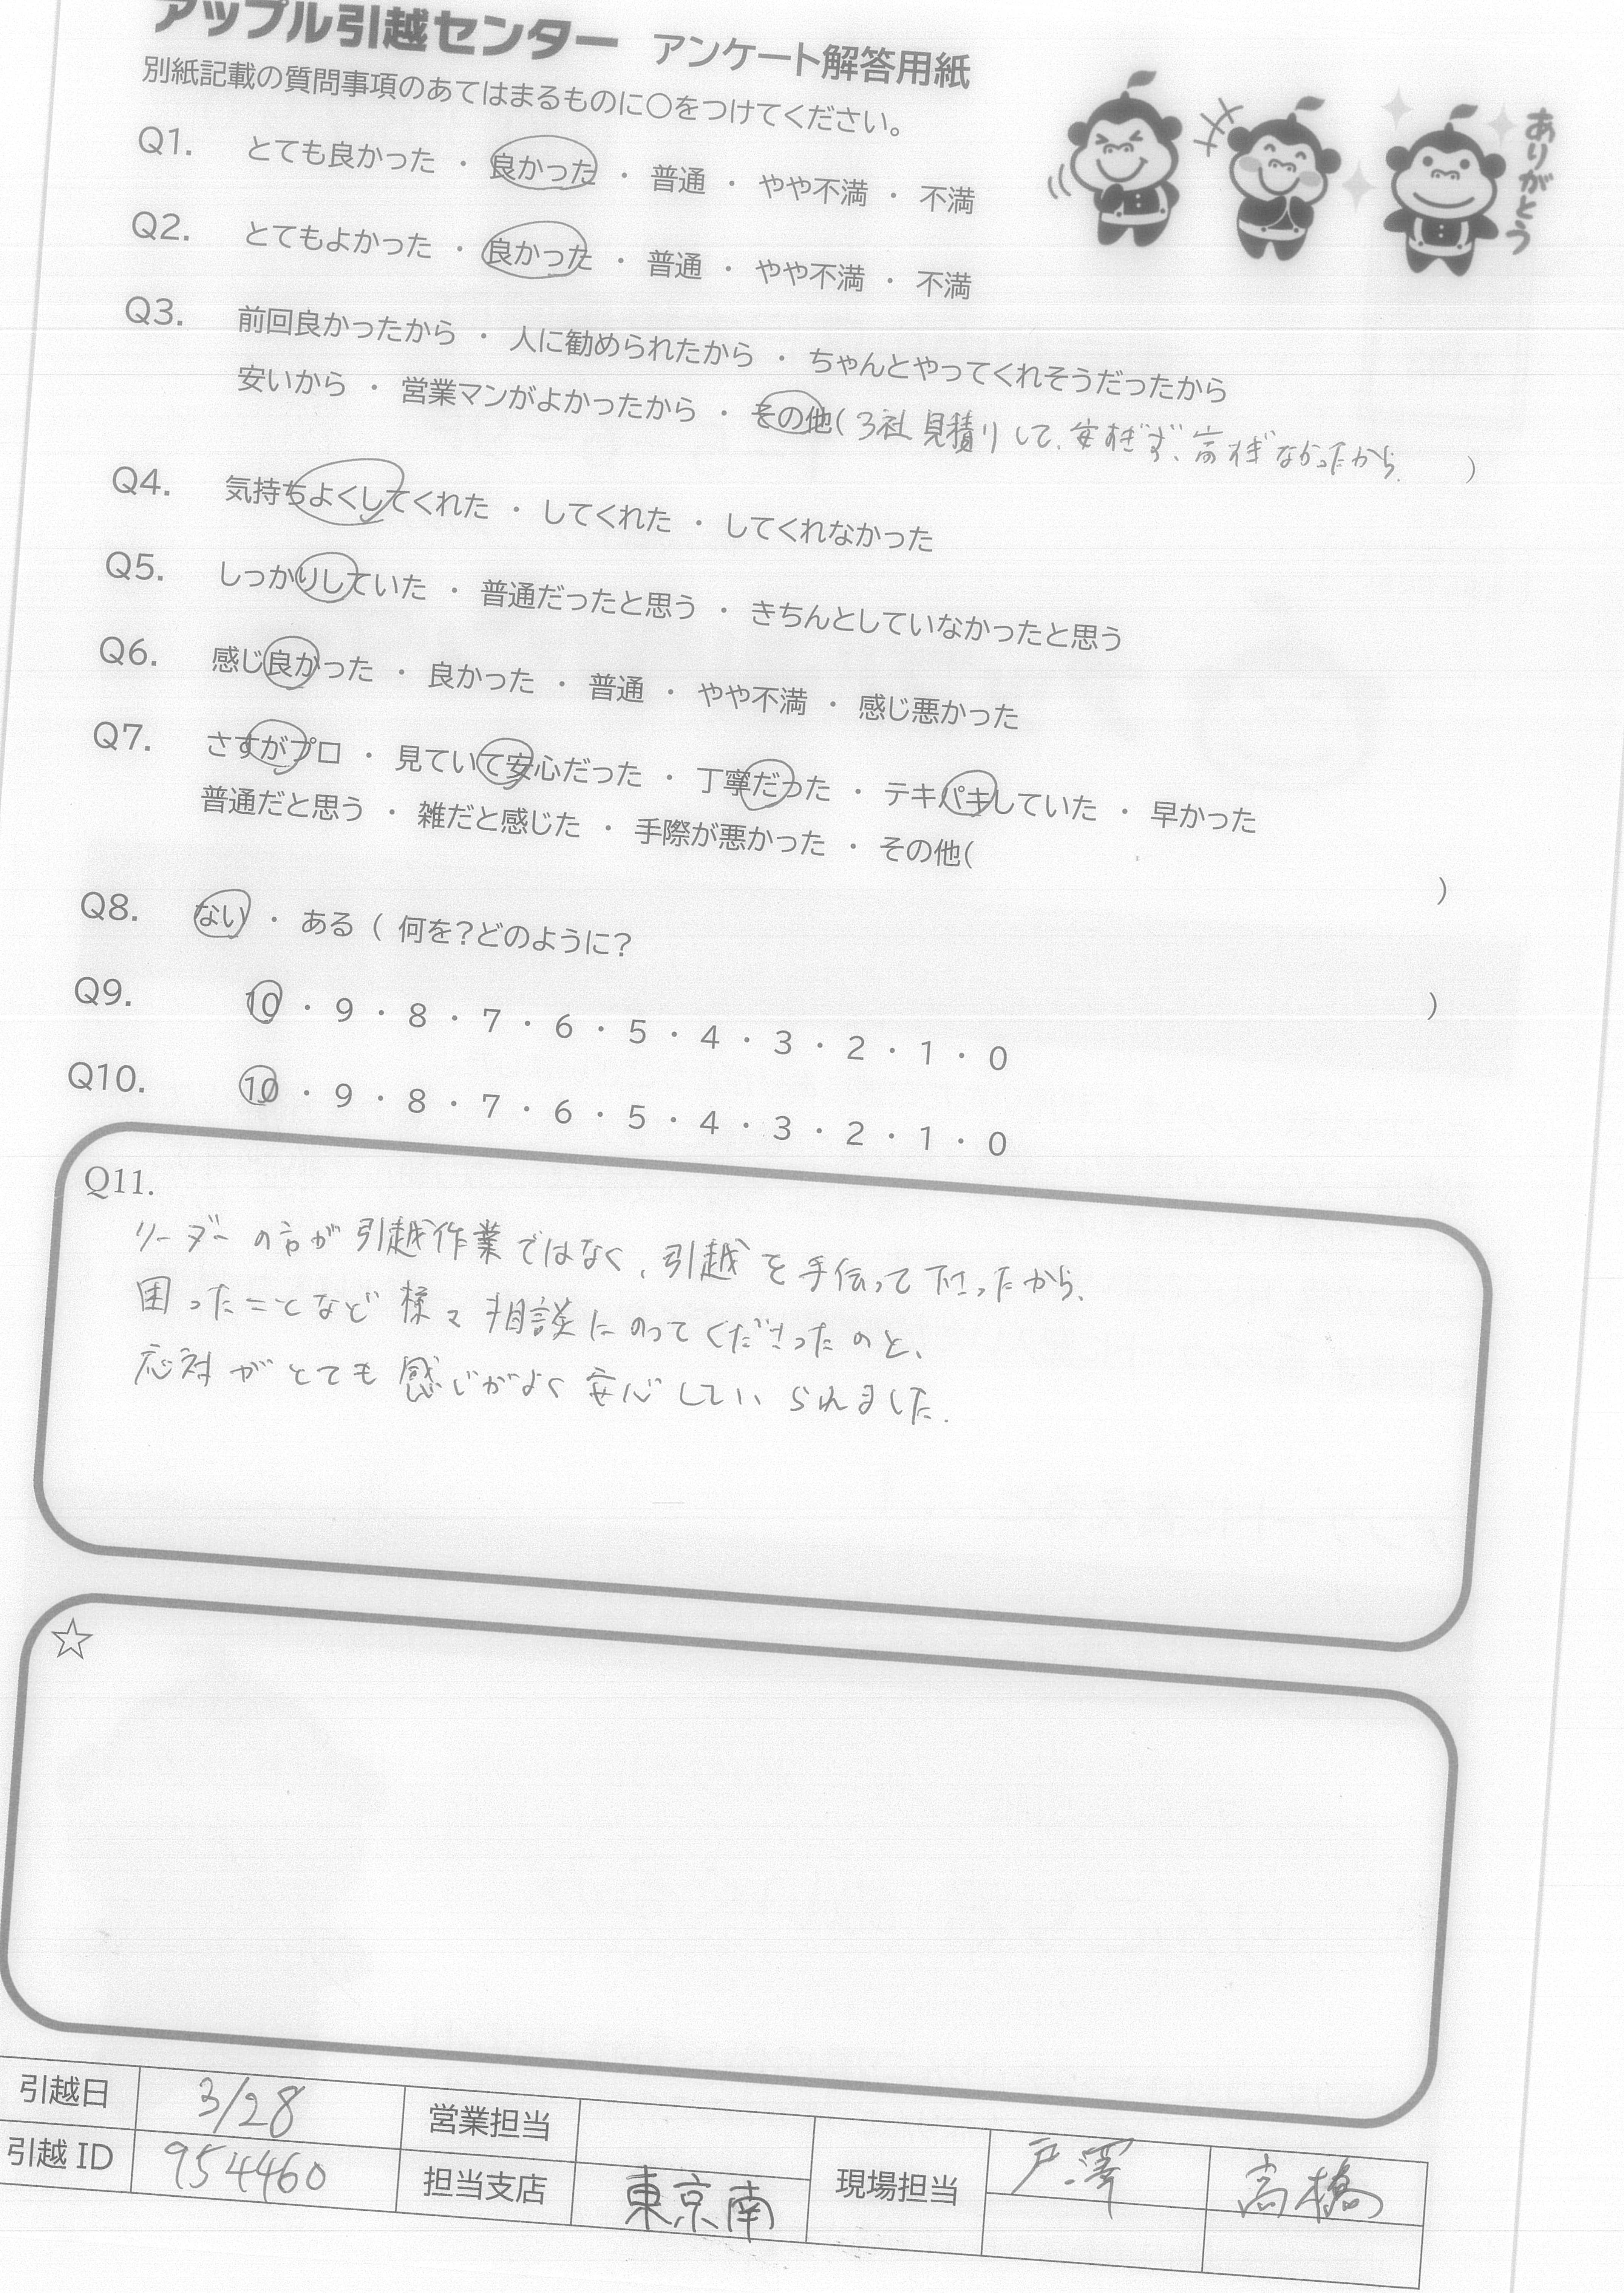 アップル引越センター アンケート解答用紙
別紙記載の質問事項のあてはまるものに○をつけてください。
ありがとう
Q1. とても良かった ・ 良かった ・ 普通 ・ やや不満 ・ 不満
Q2. とてもよかった ・ 良かった ・ 普通 ・ やや不満 ・ 不満
Q3. 前回良かったから ・ 人に勧められたから ・ ちゃんとやってくれそうだったから
安いから ・ 営業マンがよかったから ・ その他( 3社見積りして、安すぎず、高すぎなかったから。 )
Q4. 気持ちよくしてくれた ・ してくれた ・ してくれなかった
Q5. しっかりしていた ・ 普通だったと思う ・ きちんとしていなかったと思う
Q6. 感じ良かった ・ 良かった ・ 普通 ・ やや不満 ・ 感じ悪かった
Q7. さすがプロ ・ 見ていて安心だった ・ 丁寧だった ・ テキパキしていた ・ 早かった
普通だと思う ・ 雑だと感じた ・ 手際が悪かった ・ その他( )
Q8. ない ・ ある ( 何を?どのように? )
Q9. 10 ・ 9 ・ 8 ・ 7 ・ 6 ・ 5 ・ 4 ・ 3 ・ 2 ・ 1 ・ 0
Q10. 10 ・ 9 ・ 8 ・ 7 ・ 6 ・ 5 ・ 4 ・ 3 ・ 2 ・ 1 ・ 0
Q11.
リーダーの方が引越作業ではなく、引越を手伝って下さったから、
困ったことなど様々相談にのってくださったのと、
応対がとても感じがよく安心していられました。
☆
引越日 3/28 営業担当
引越ID 954460 担当支店 東京南 現場担当 戸澤 高橋